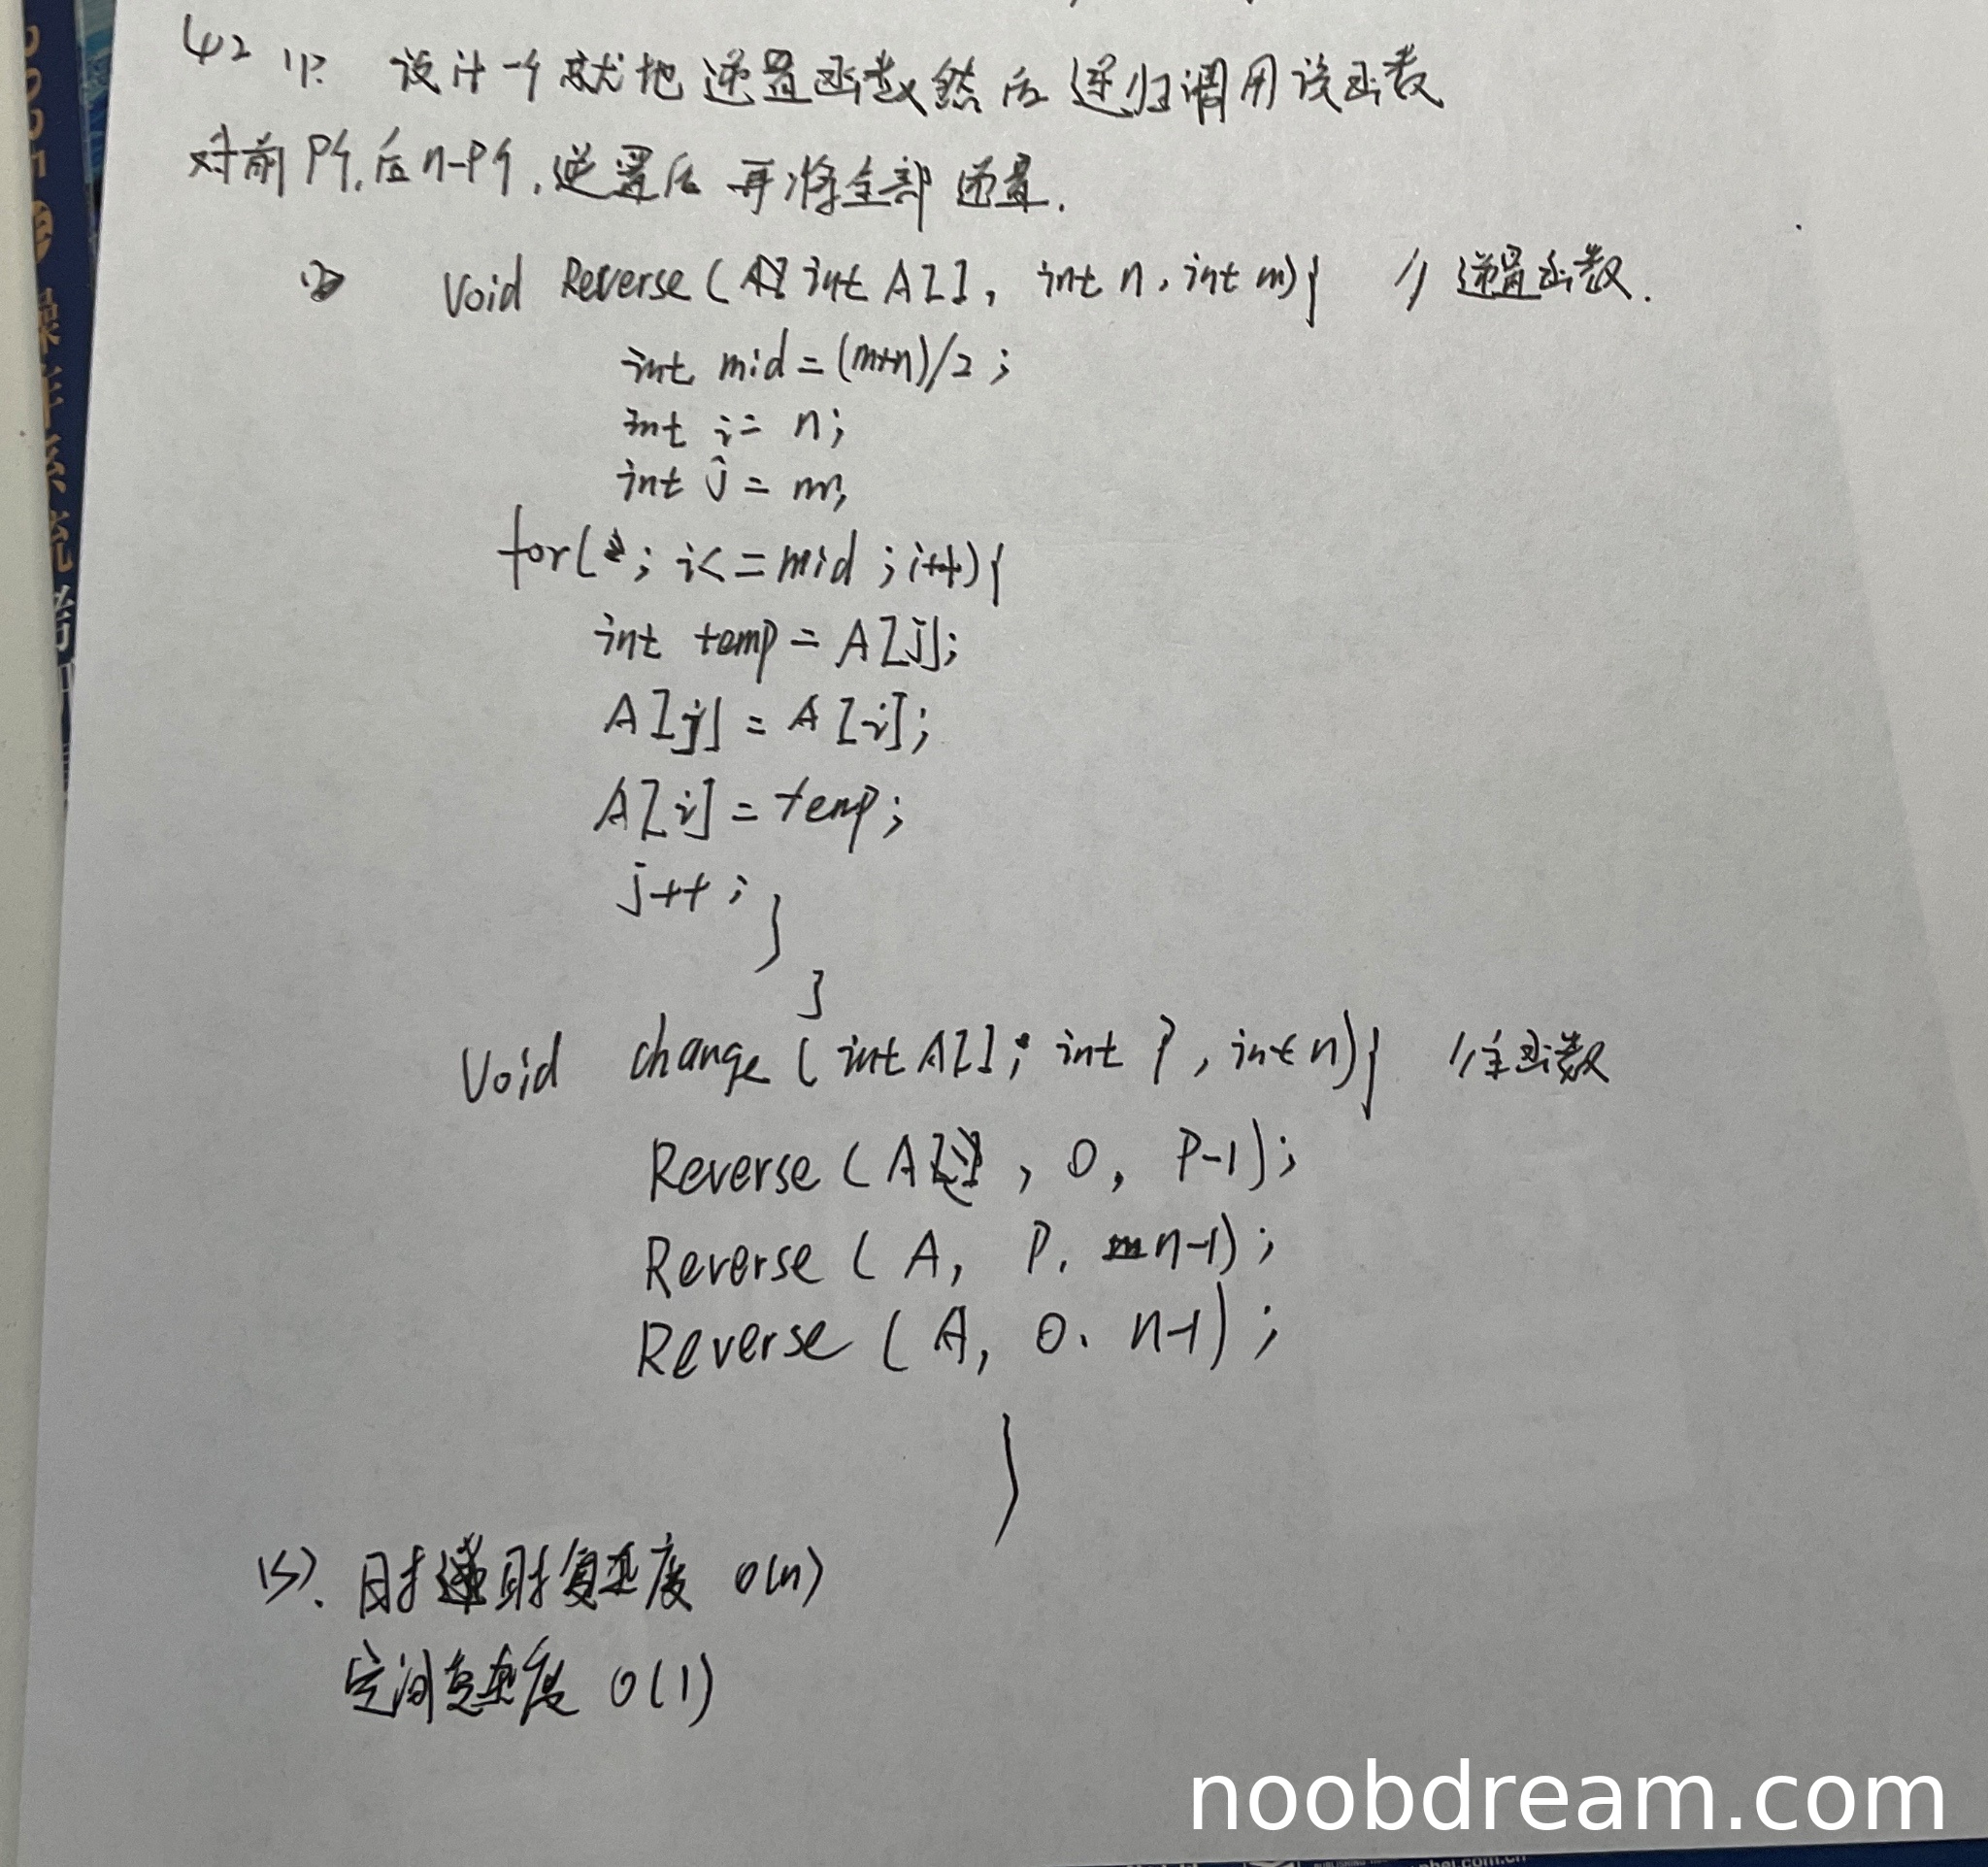 42 (1): 设计一个就地逆置函数然后递归调用该函数
对前P个,后n-P个,逆置后再将全部逆置.
(2) void Reverse(int A[], int n, int m){ // 逆置函数.
int mid=(m+n)/2;
int i=n;
int j=m;
for( ; i<=mid ;i++){
int temp=A[j];
A[j]=A[i];
A[i]=temp;
j++;
}
}
void change(int A[], int P, int n){ //主函数
Reverse(A, 0, P-1);
Reverse(A, P, n-1);
Reverse(A, 0, n-1);
}
(3). 时间复杂度 O(n)
空间复杂度 O(1)
noobdream.com